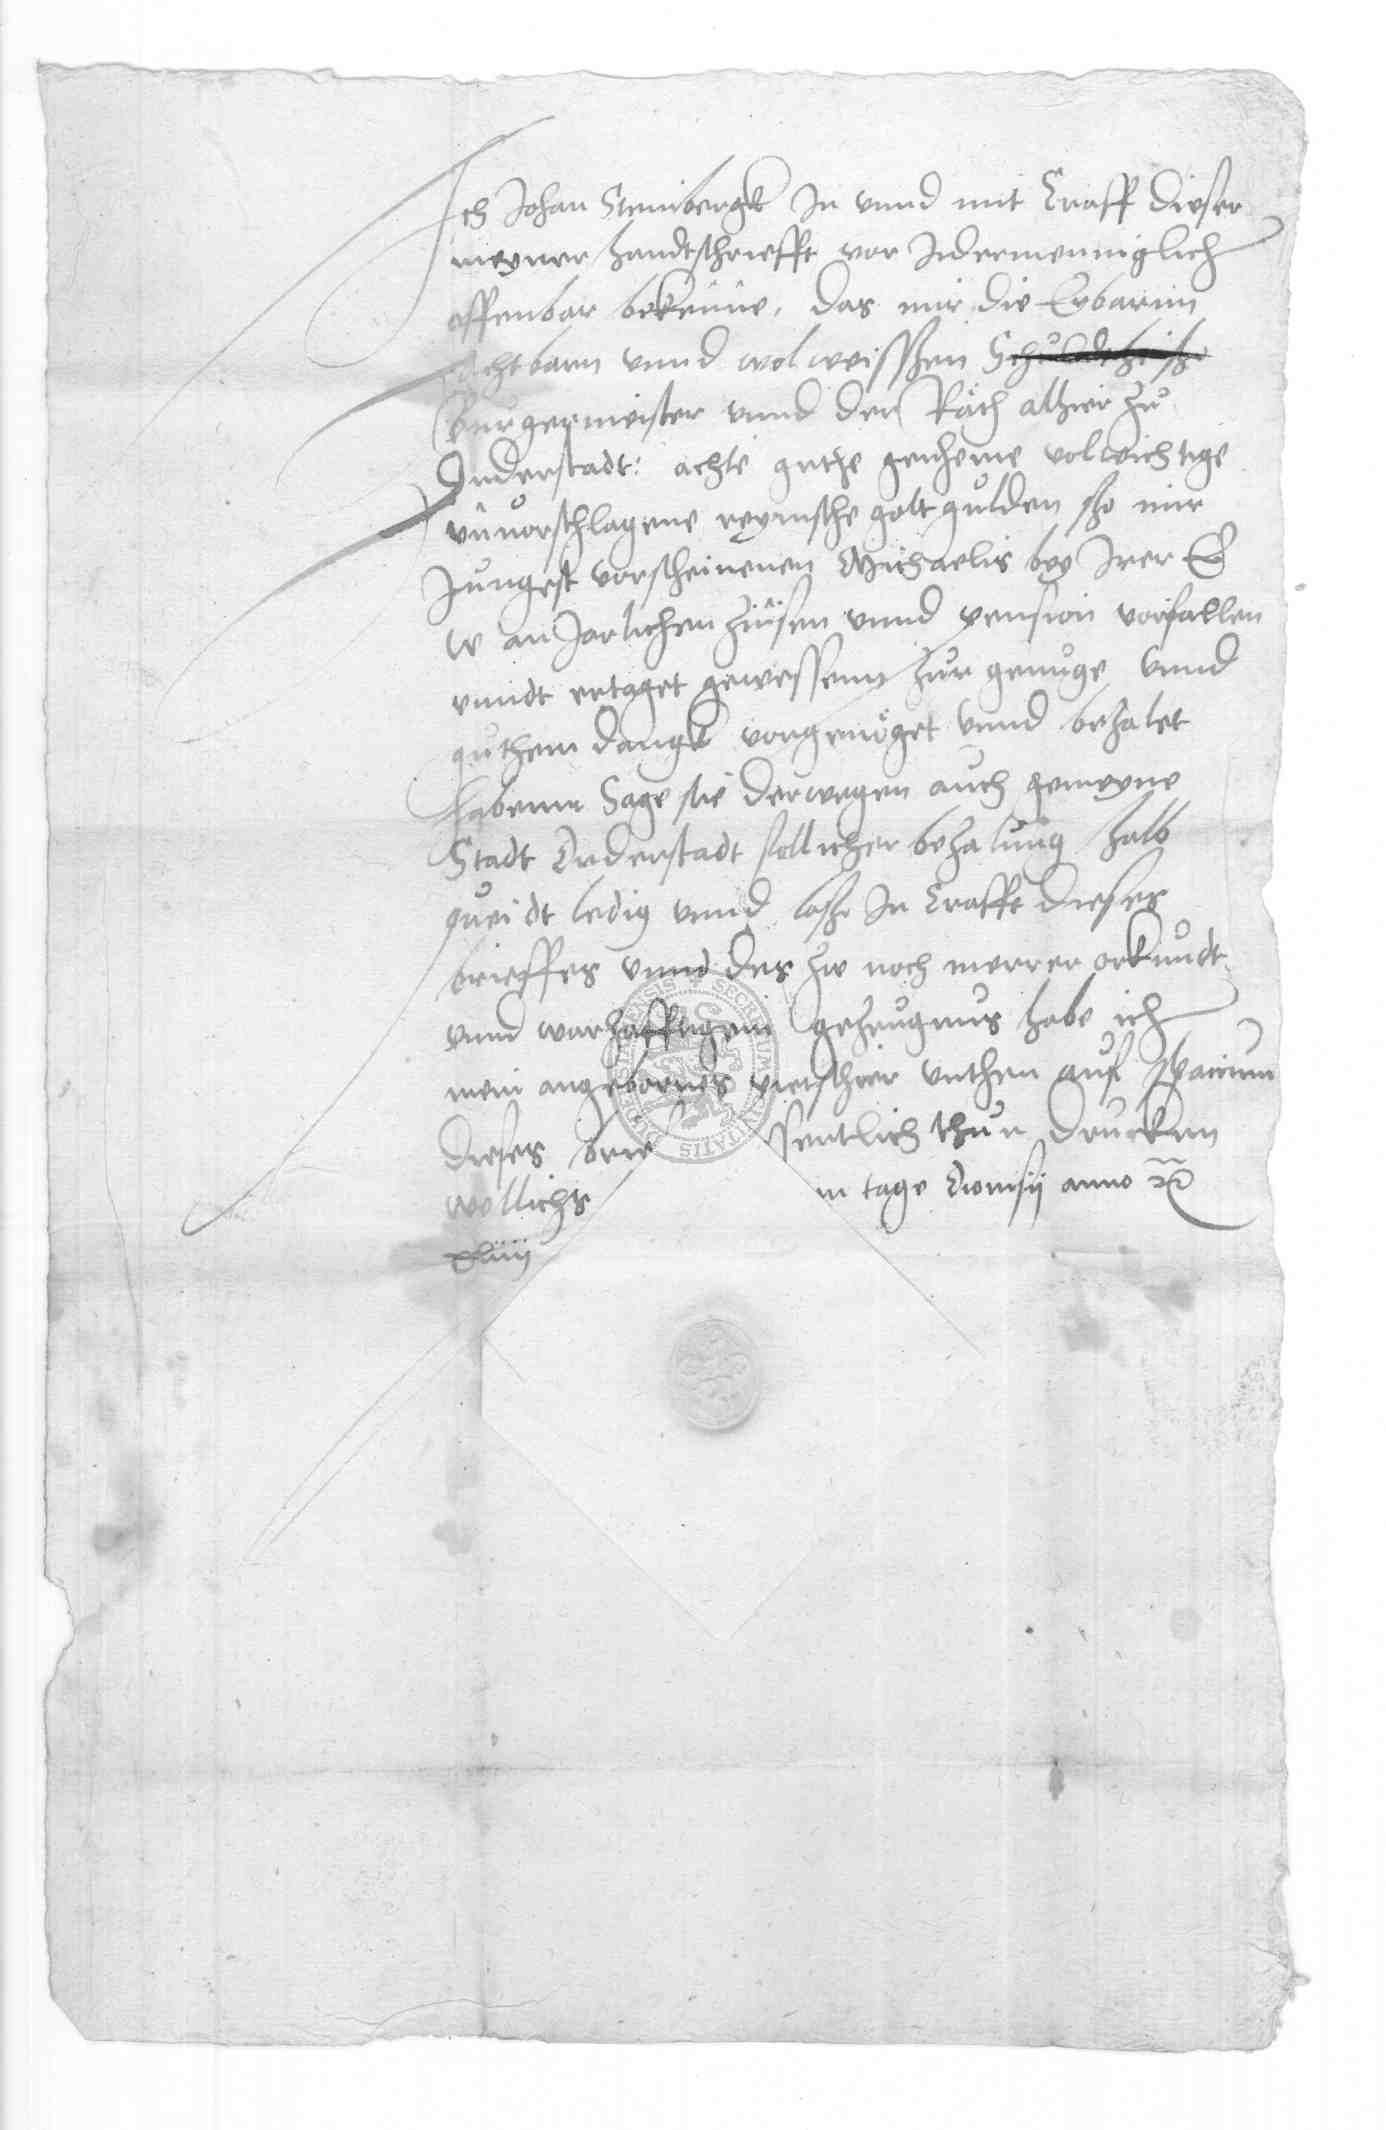 Ich Johan Steinbergk In vnnd mit Crafft dieser
meyner handtschriefft vor Idermenniglich
offenbar bekenne, das mir die Erbarnn
achtbarn vnnd wolweisshen Schuldtheisße
Burgermeister vnnd der Rath alhier zu
Duderstadt: achte guthe geneheme volwichtige
vnuorschlagene reynische golt gulden sho mir
Jungest vorscheinenen Michaelis bey Irer E
W an Jarlichem Zinsen vnnd pension vorfallen
vnndt ertaget gewessenn zur genuge vnnd
guthem dangk vorgenöget vnnd bezalet
habenn Sage sie derwegen auch gemeyne
Stadt Duderstadt sollicher bezalung halb
queidt ledig vnnd losß In Crafft dieses
brieffes vnnd des zw noch merrer orkundt
vnnd warhafftigem gezeugnus habe ich
mein angebornes pietschier vnthen auf spacium
dieses brie ffentlich thun drucken
wellichs m tage Dionisij anno
xliiij
SECRETUM